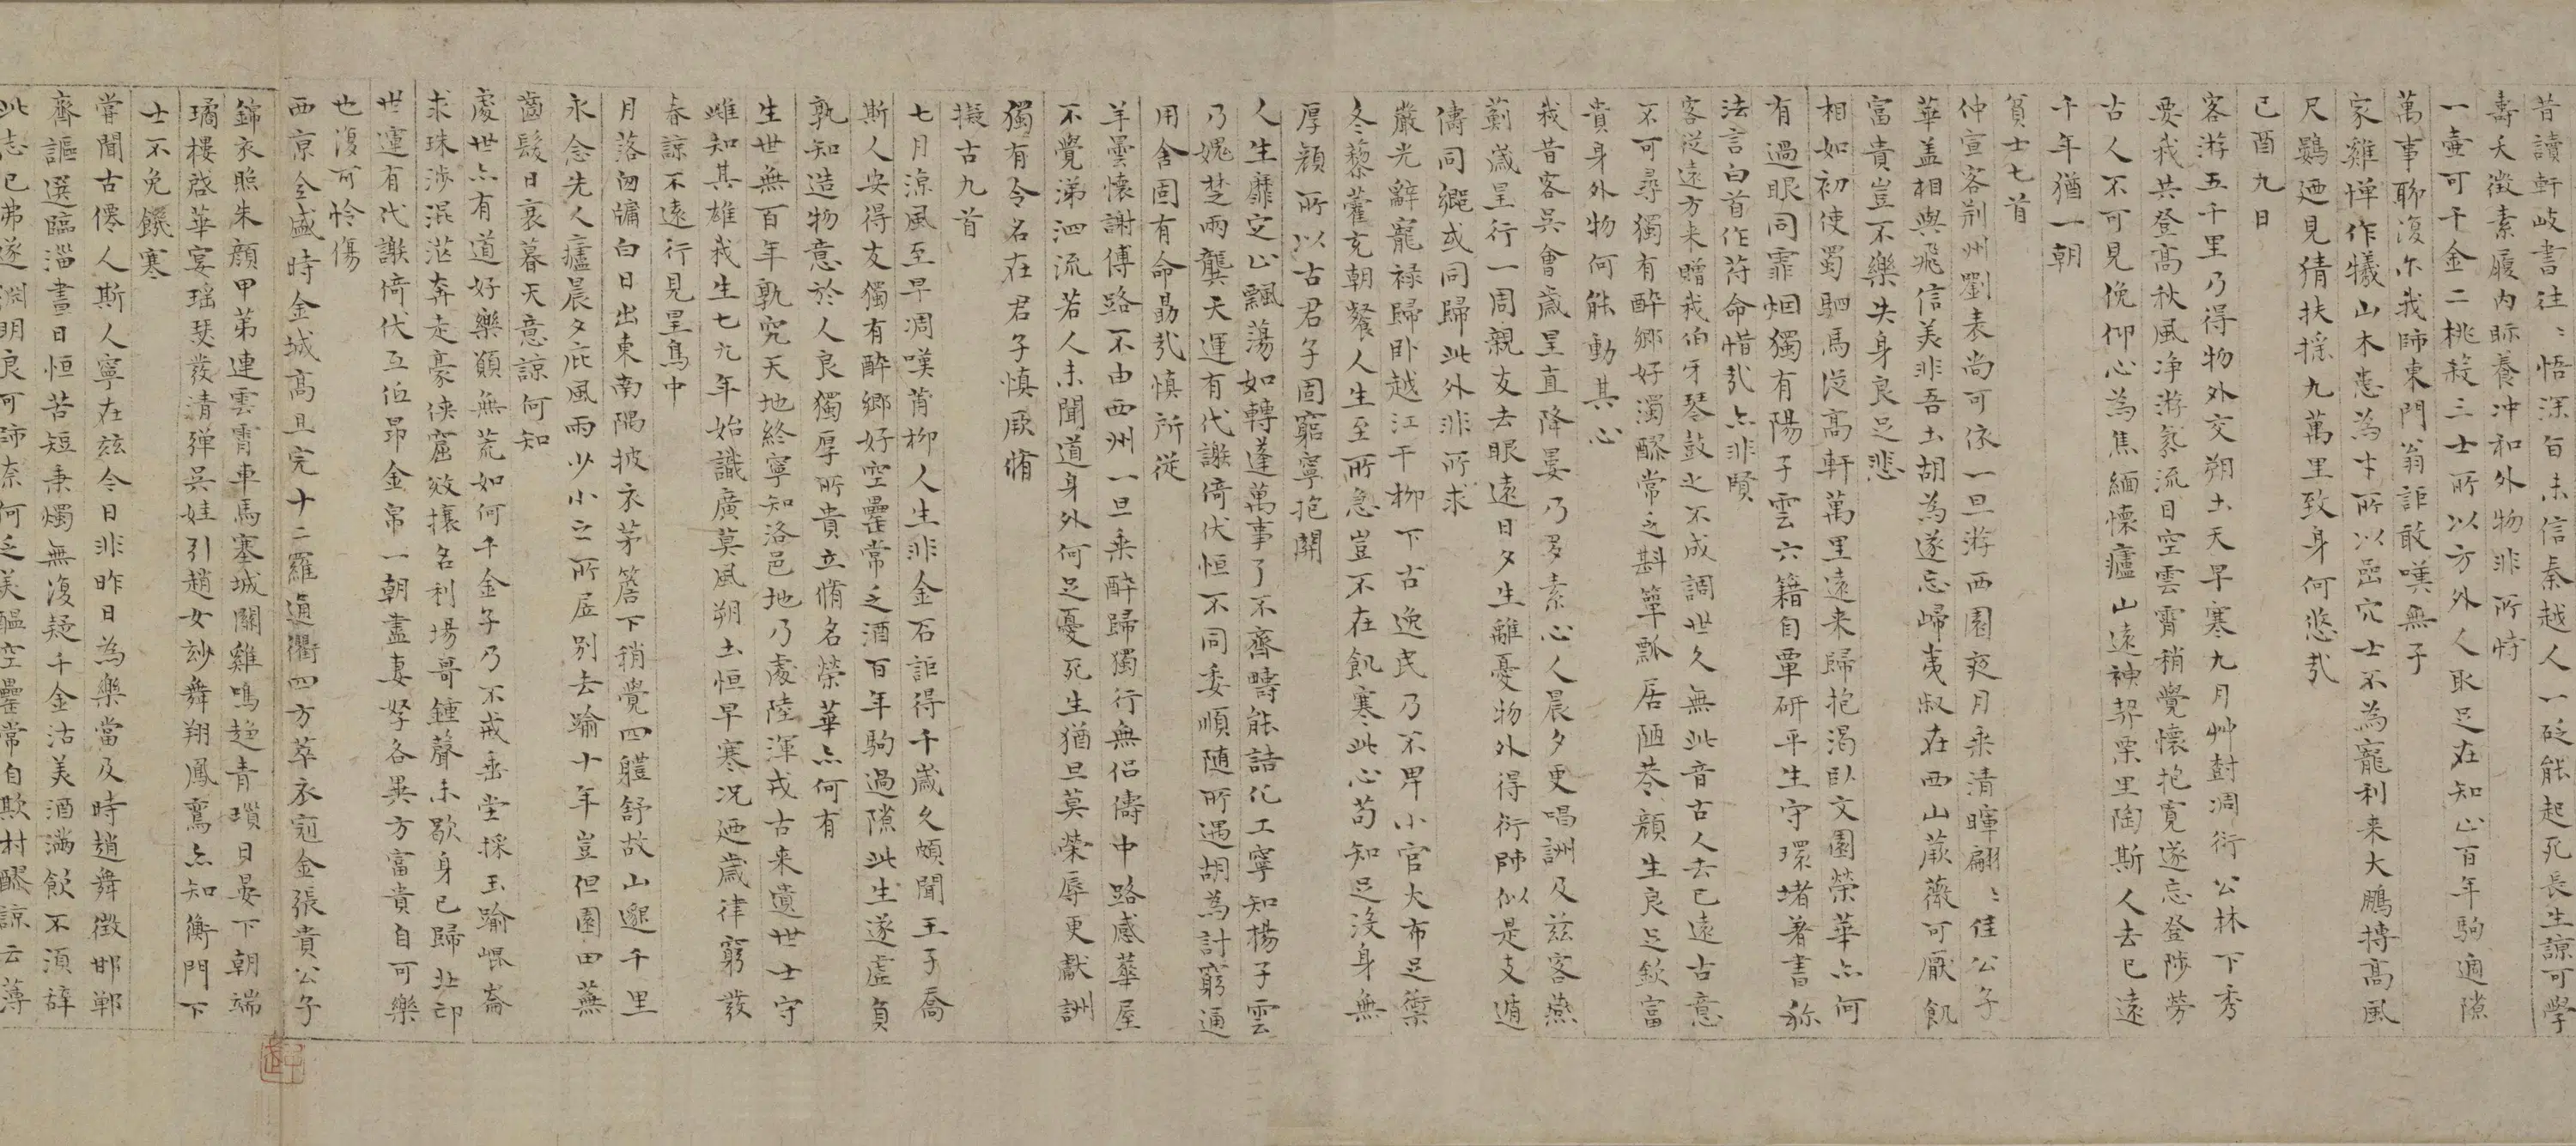 昔讀軒岐書往〻悟深旨未信秦越人一砭能起死長生諒可學
壽夭徵素履內眎養冲和外物非所恃
一壷可千金二桃殺三士所以方外人取足在知止百年駒過隙
萬事聊復尓我師東門翁詎敢嘆無子
家雞憚作犧山木恚為才所以嵒穴士不為寵利来大鵬摶髙風
尺鷃廼見猜扶揺九萬里致身何悠㢤
已酉九日
客游五千里乃得物外交朔土天早寒九月艸尌凋衍公林下秀
要我共登髙秋風净游氛流目空雲霄稍覺懷抱寛遂忘登陟勞
古人不可見俛仰心為焦緬懷廬山遠神契栗里陶斯人去已遠
千年猶一朝
貧士七首
仲宣客荊州劉表尚可依一旦游西園夜月乘清暉翩〻佳公子
華盖相與飛信美非吾土胡為遂忘歸夷叔在西山蕨薇可厭飢
富貴豈不樂失身良足悲
相如初使蜀駟馬從髙軒萬里遠来歸抱渴臥文園榮華亦何
有過眼同霏烟獨有陽子雲六籍自覃研平生守環堵著書称
法言白首作苻命惜㢤亦非賢
客從遠方来贈我伯牙琴鼓之不成調世久無此音古人去已遠古意
不可尋獨有醉郷好濁醪常乏斟簞瓢居陋巷顔生良足欽富
貴身外物何能動其心
我昔客吳會歲星直降婁乃多素心人晨夕更唱詶及兹客燕
薊歲星行一周親友去眼遠日夕生離憂物外得衍師似是支遁
儔同郷或同歸此外非所求
嚴光辭寵禄歸卧越江干柳下古逸民乃不卑小官大布足禦
冬藜藿充朝餐人生至所急豈不在飢寒此心苟知足沒身無
厚顔所以古君子固窮寧抱關
人生靡定止飄蕩如轉蓬萬事了不齊疇能詰化工寧知楊子雲
乃媿楚兩龔天運有代謝倚伏恒不同委順随所遇胡為計窮通
用舍固有命勗㢤慎所從
羊曇懷謝傅路不由西州一旦乘醉歸獨行無侣儔中路感華屋
不覺涕泗流若人未聞道身外何足憂死生猶旦莫榮辱更獻詶
獨有令名在君子慎厥脩
擬古九首
七月涼風至早凋嘆蒲柳人生非金石詎得千歲久頗聞王子喬
斯人安得友獨有醉郷好空罍常乏酒百年駒過隙此生遂虚負
孰知造物意於人良獨厚所貴立脩名榮華亦何有
生世無百年孰究天地終寧知洛邑地乃處陸渾戎古来遺世士守
雌知其雄我生七九年始識廣莫風朔土恒早寒况廼歲律窮發
春諒不遠行見星鳥中
月落囱牗白日出東南隅披衣茅簷下稍覺四軆舒故山邈千里
永念先人廬晨夕庇風雨少小之所居別去踰十年豈但園田蕪
齒髮日衰暮天意諒何知
處世亦有道好樂頋無荒如何千金子乃不戒垂堂採玉踰崐崙
求珠涉混茫奔走豪俠窟攽攘名利場哥鍾聲未歇身已歸北邙
世運有代謝倚伏互伍昻金帛一朝盡妻孥各異方富貴自可樂
也復可怜傷
西京全盛時金城髙且完十二羅通衢四方萃衣冠金張貴公子
錦衣照朱顔甲苐連雲霄車馬塞城闗雞鳴趍青瑣日晏下朝端
璚樓啓華宴瑶琴發清弹吳娃引趙女玅舞翔鳳鸞亦知衡門下
士不免饑寒
甞聞古僊人斯人寧在兹今日非昨日為樂當及時趙舞徵邯鄲
齊謳選臨淄晝日恒苦短秉燭無復疑千金沽美酒滿飲不湏辞
此志已弗遂淵明良可師柰何乏美醖空罍常自欺村醪諒云薄